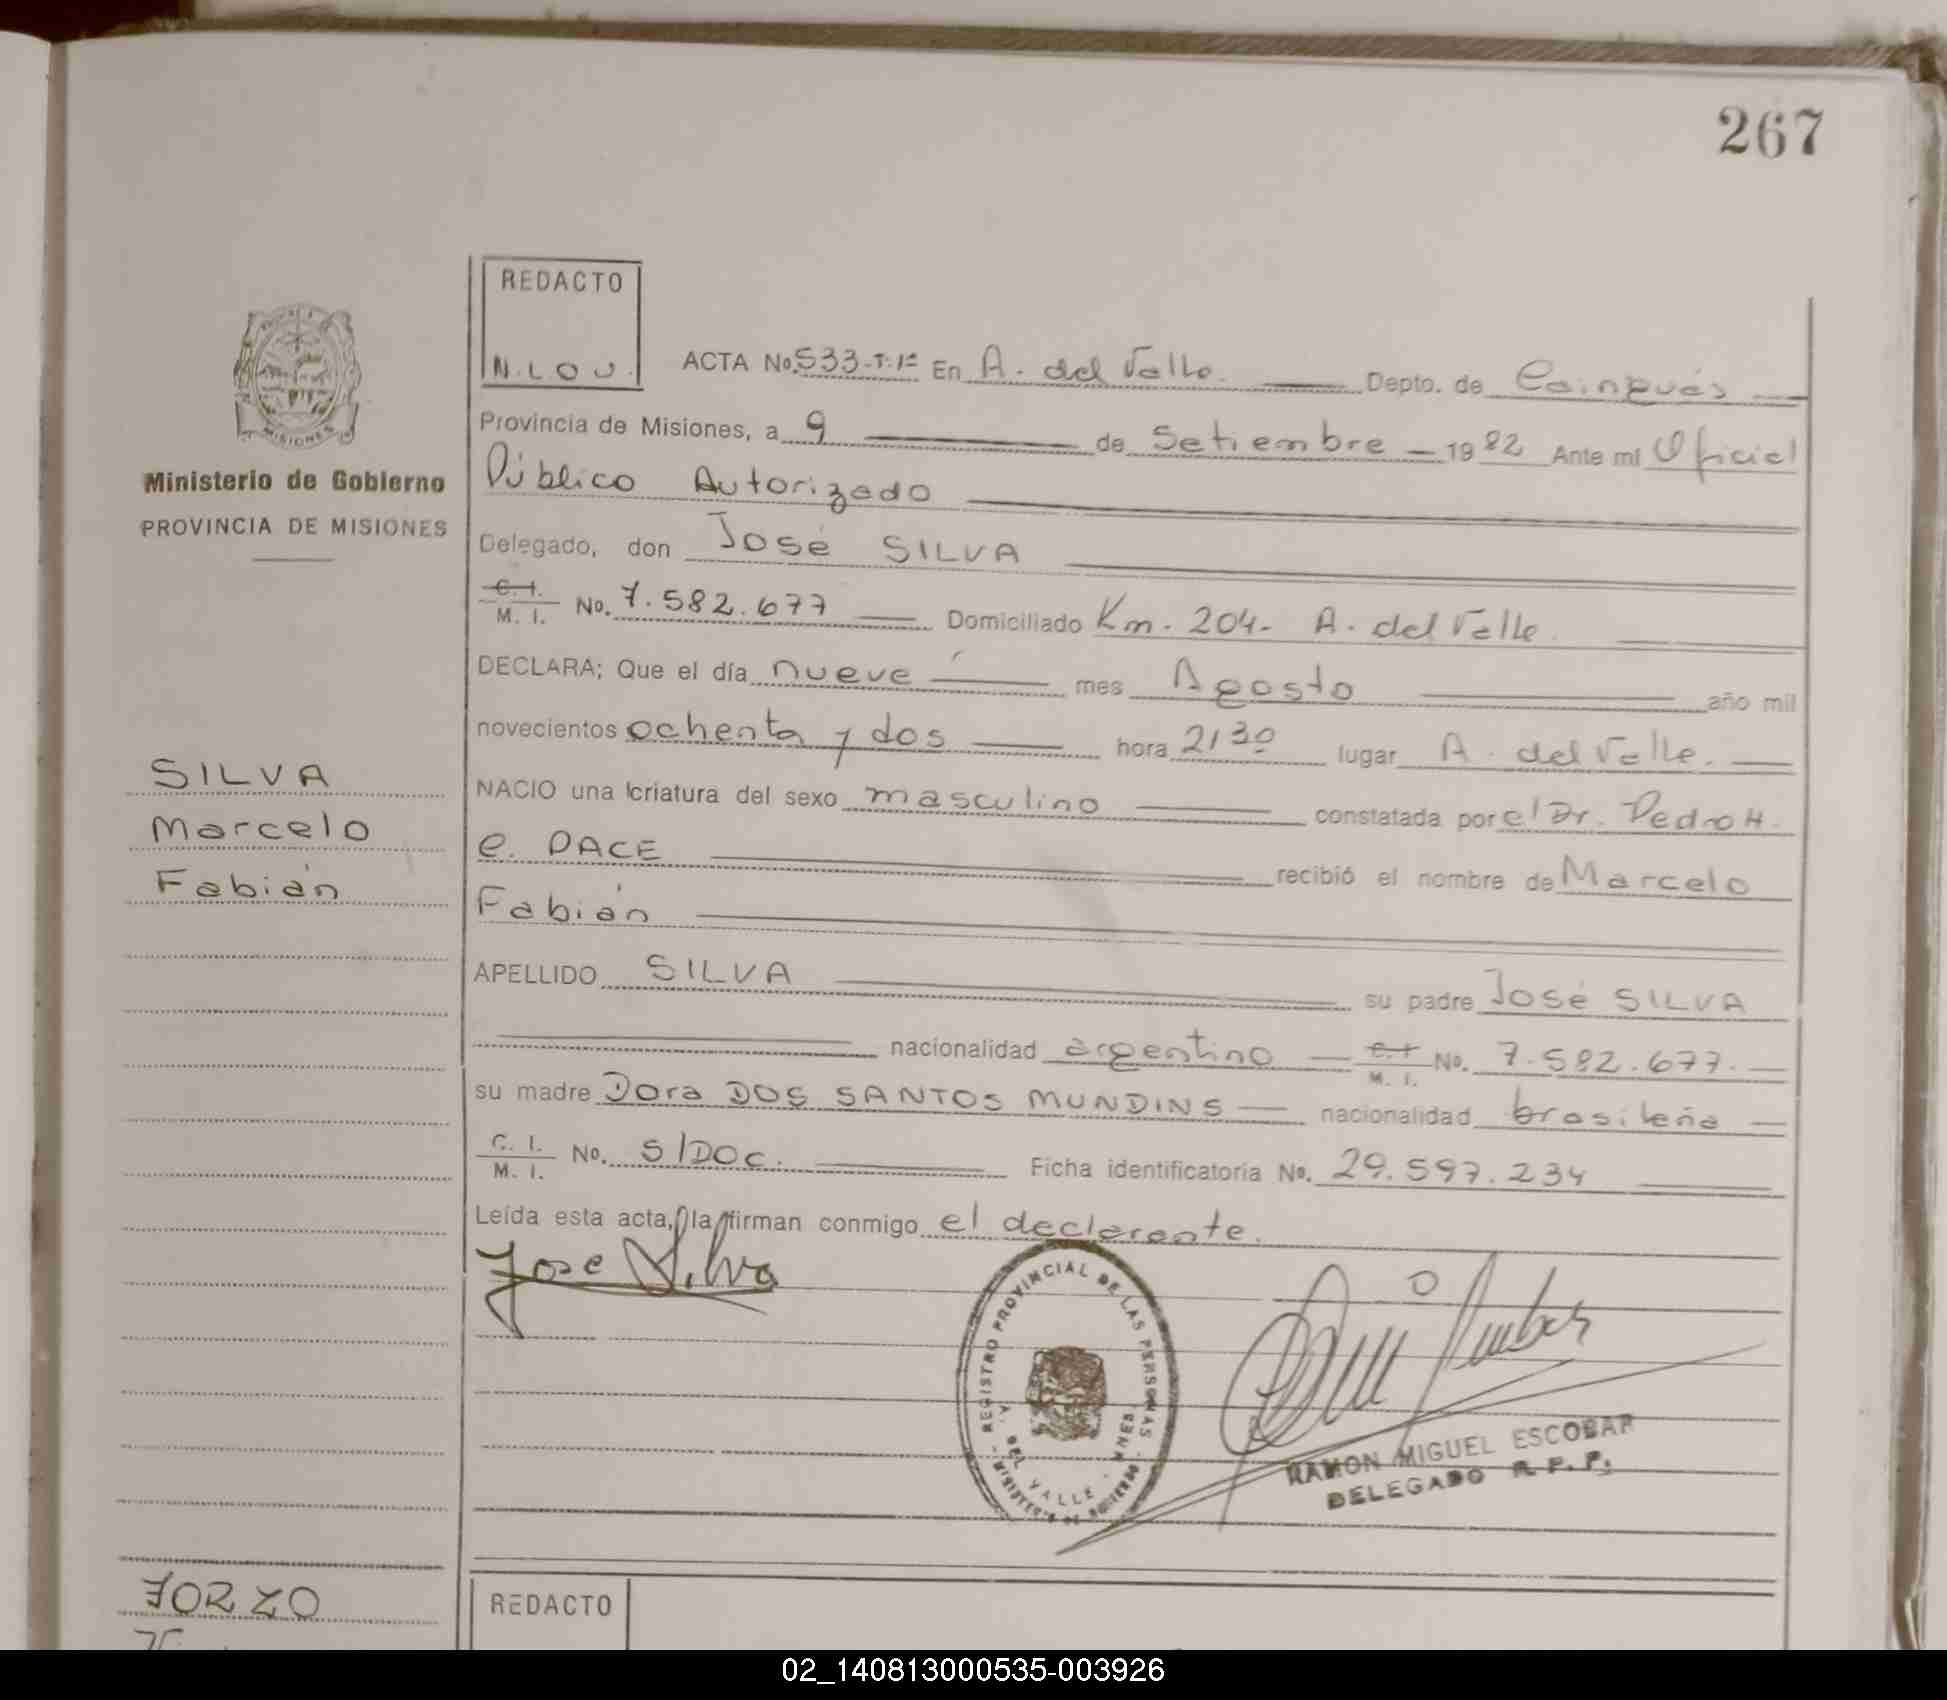 267
REDACTO
N. LOU.
MISIONES
Ministerio de Gobierno
PROVINCIA DE MISIONES
ACTA No. 533-T:1º En A. del Valle. Depto. de Cainguás
Provincia de Misiones, a 9 de Setiembre 1982 Ante mí Oficial
Público Autorizado
Delegado, don José SILVA
C. I. M. I. No. 7.582.677 Domiciliado Km. 204- A. del Valle.
DECLARA; Que el día nueve mes Agosto año mil
novecientos ochenta y dos hora 2130 lugar A. del Valle.
SILVA
Marcelo
Fabián
NACIO una criatura del sexo masculino constatada por el Dr. Pedro H.
e. PACE recibió el nombre de Marcelo
Fabián
APELLIDO SILVA su padre José SILVA
nacionalidad argentino C. I. M. I. No. 7.582.677.
su madre Dora DOS SANTOS MUNDINS nacionalidad brasileña
C. I. M. I. No. S/DOC. Ficha identificatoria No. 29.597.234
Leída esta acta, la firman conmigo el declarante.
Jose Silva
REGISTRO PROVINCIAL DE LAS PERSONAS
A. DEL VALLE - MNES.
MINISTERIO DE GOBIERNO
RAMON MIGUEL ESCOBAR
DELEGADO R. P. P.
REDACTO
02_140813000535-003926